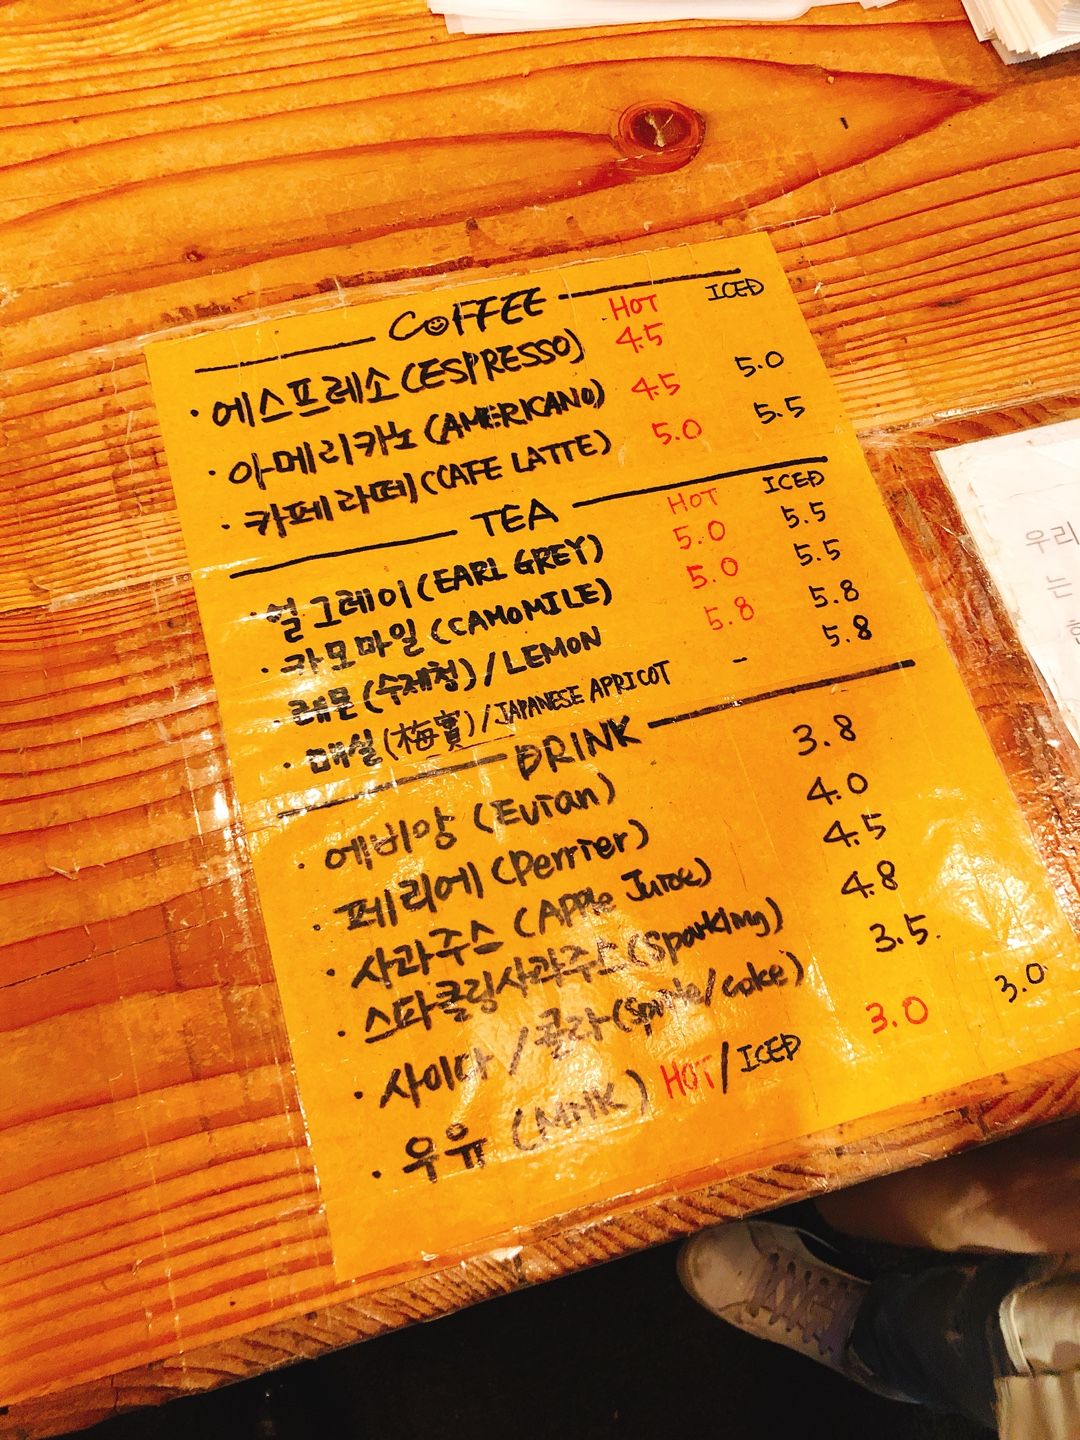 COFFEE HOT ICED
· 에스프레소 (ESPRESSO) 4.5
· 아메리카노 (AMERICANO) 4.5 5.0
· 카페라떼 (CAFE LATTE) 5.0 5.5
TEA HOT ICED
· 얼그레이 (EARL GREY) 5.0 5.5
· 카모마일 (CAMOMILE) 5.0 5.5
· 레몬 (수제청) / LEMON 5.8 5.8
· 매실 (梅實) / JAPANESE APRICOT - 5.8
DRINK
· 에비앙 (Evian) 3.8
· 페리에 (Perrier) 4.0
· 사과주스 (Apple Juice) 4.5
· 스파클링사과주스 (Sparkling) 4.8
· 사이다 / 콜라 (Sprite/coke) 3.5.
· 우유 (MILK) HOT / ICED 3.0 3.0
우리
는